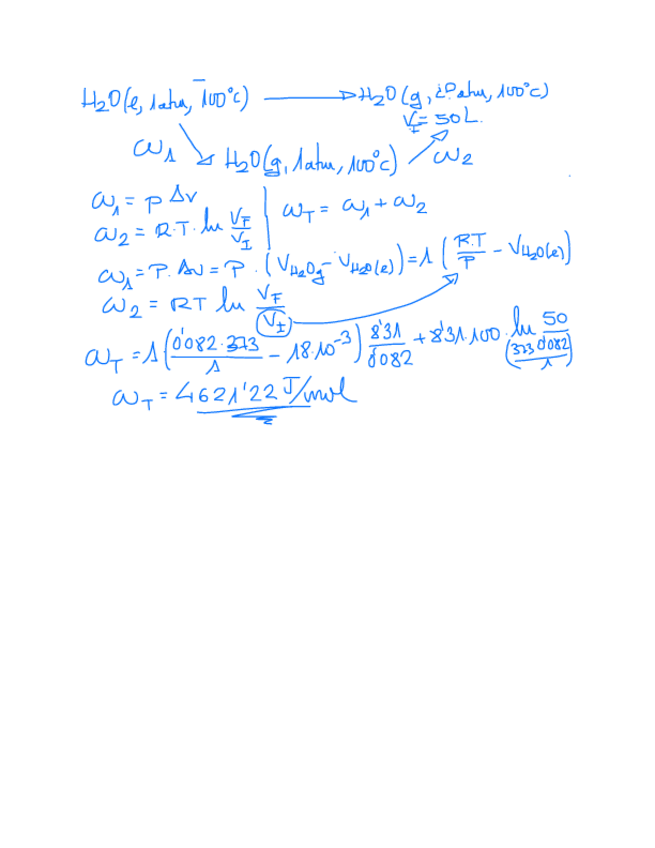 H2O(l, 1atm, 100°C) → H2O(g, ¿P atm, 100°C)
VF = 50L.
ω1 H2O(g, 1atm, 100°C) ω2
ω1 = p ΔV | ωT = ω1 + ω2
ω2 = R.T. ln VF/VI
ω1 = P. ΔV = P . (VH2Og - VH2O(l)) = 1 (R.T/P - VH2O(l))
ω2 = RT ln VF/VI
ωT = 1 (0'082.373/1 - 18.10^-3) 8'31/0082 + 8'31.100. ln 50/(373 0'082/1)
ωT = 4621'22 J/mol